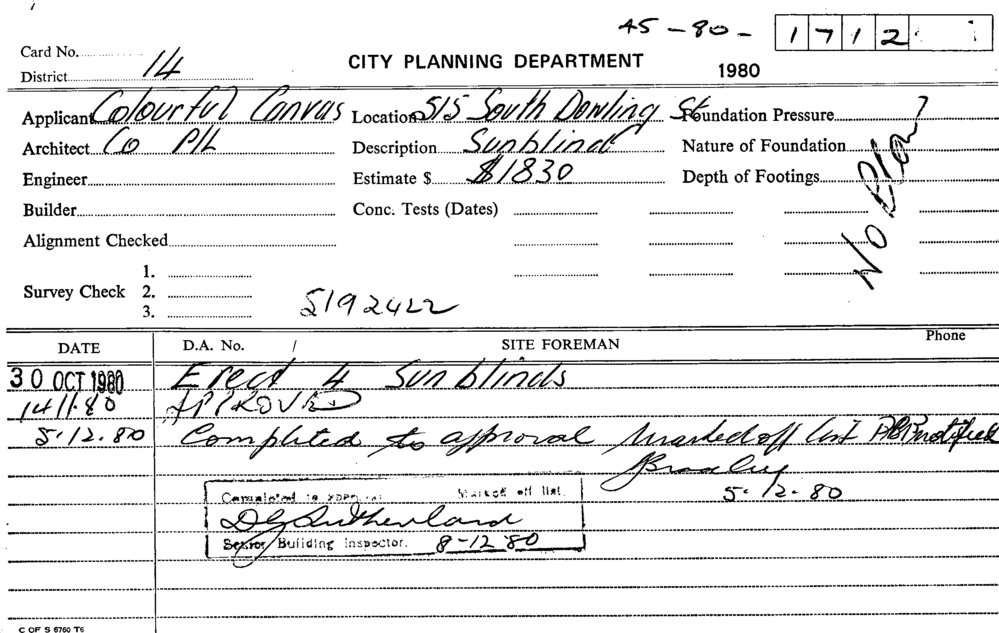 45-80- 1712
Card No.
District 14
CITY PLANNING DEPARTMENT
1980
Applicant Colourful Canvas Location 515 South Dowling St Foundation Pressure
Architect Co P/L Description Sunblind Nature of Foundation
Engineer Estimate $ $1830 Depth of Footings
No Plan
Builder Conc. Tests (Dates)
Alignment Checked
1.
Survey Check 2.
3.
5192422
DATE D.A. No. SITE FOREMAN Phone
30 OCT 1980 Erect 4 Sunblinds
14 11.80 APPROVED
5.12.80 Completed to approval Marked off list notified
5.12.80
Completed to approval Marked off list.
DG Sutherland
Senior Building Inspector. 8-12-80
C OF S 6760 T6